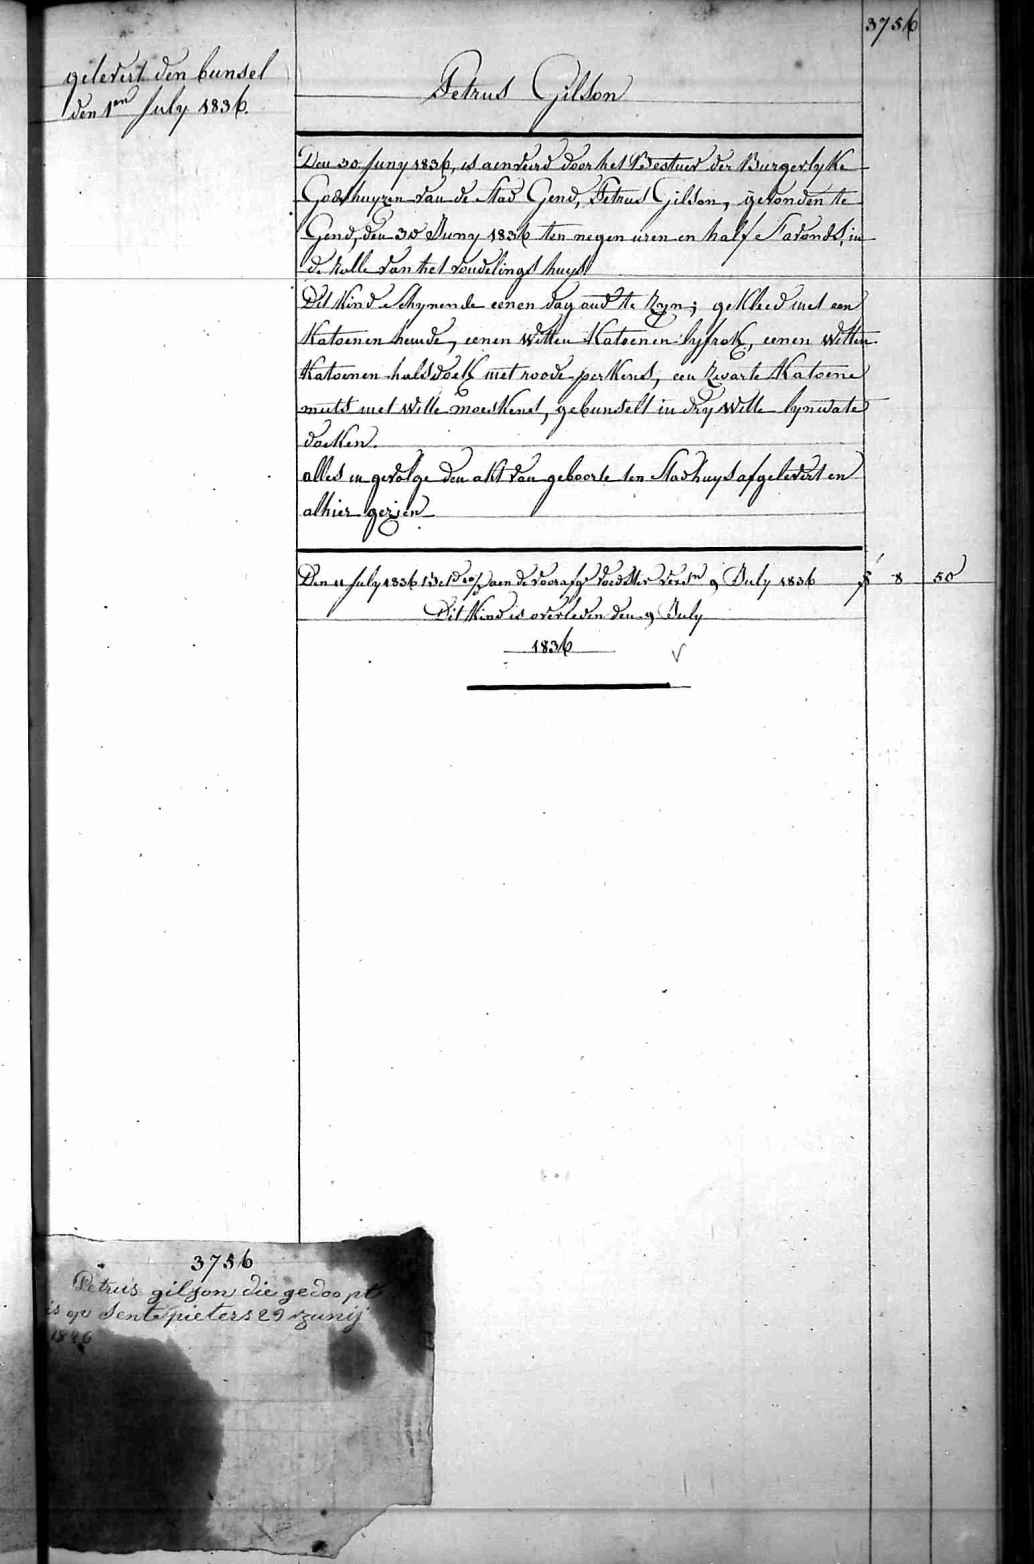 3756
gelevert den bunsel
den 1en July 1836.
Petrus Gilson
Den 30 Juny 1836, is aenveerd door het Bestuer der Burgerlyke
Godshuyzen van de Stad Gend, Petrus Gilson, gevonden te
Gend, den 30 Juny 1836 ten negen uren en half s'avonds, in
de rolle van het vondelings huys
Dit kind schynende eenen dag oud te zyn; gekleed met een
katoenen hemde, eenen witten katoenen lyfrok, eenen witten
katoenen halsdoek met roode perkens, een zwarte katoene
muts met witte moeskens, gebunselt in dry witte lynwate
doeken.
alles in gevolge den akt van geboorte ten Stadhuys afgelevert en
alhier gezien
Den 11 July 1836 aen de voorafge voedster 9 July 1836 8 50
Dit kind is overleden den 9 July
1836
3756
Petrus gilson die gedoopt
is op sente pieters 29 zunij